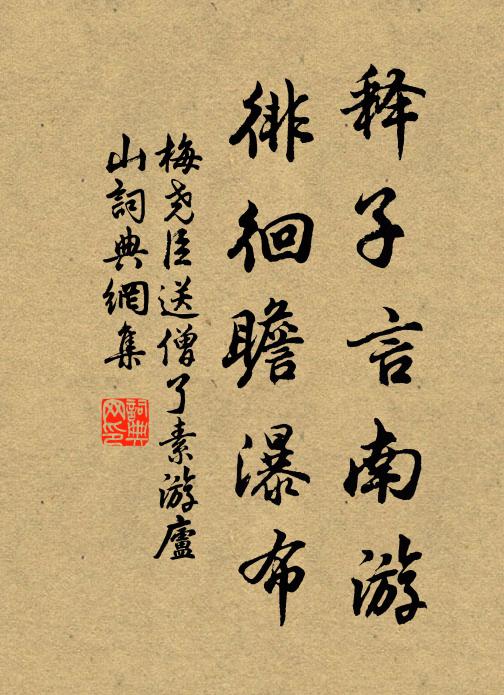 释子言南游
徘徊瞻瀑布
梅尧臣送僧了素游廬
山詞典網集
詞典
网印